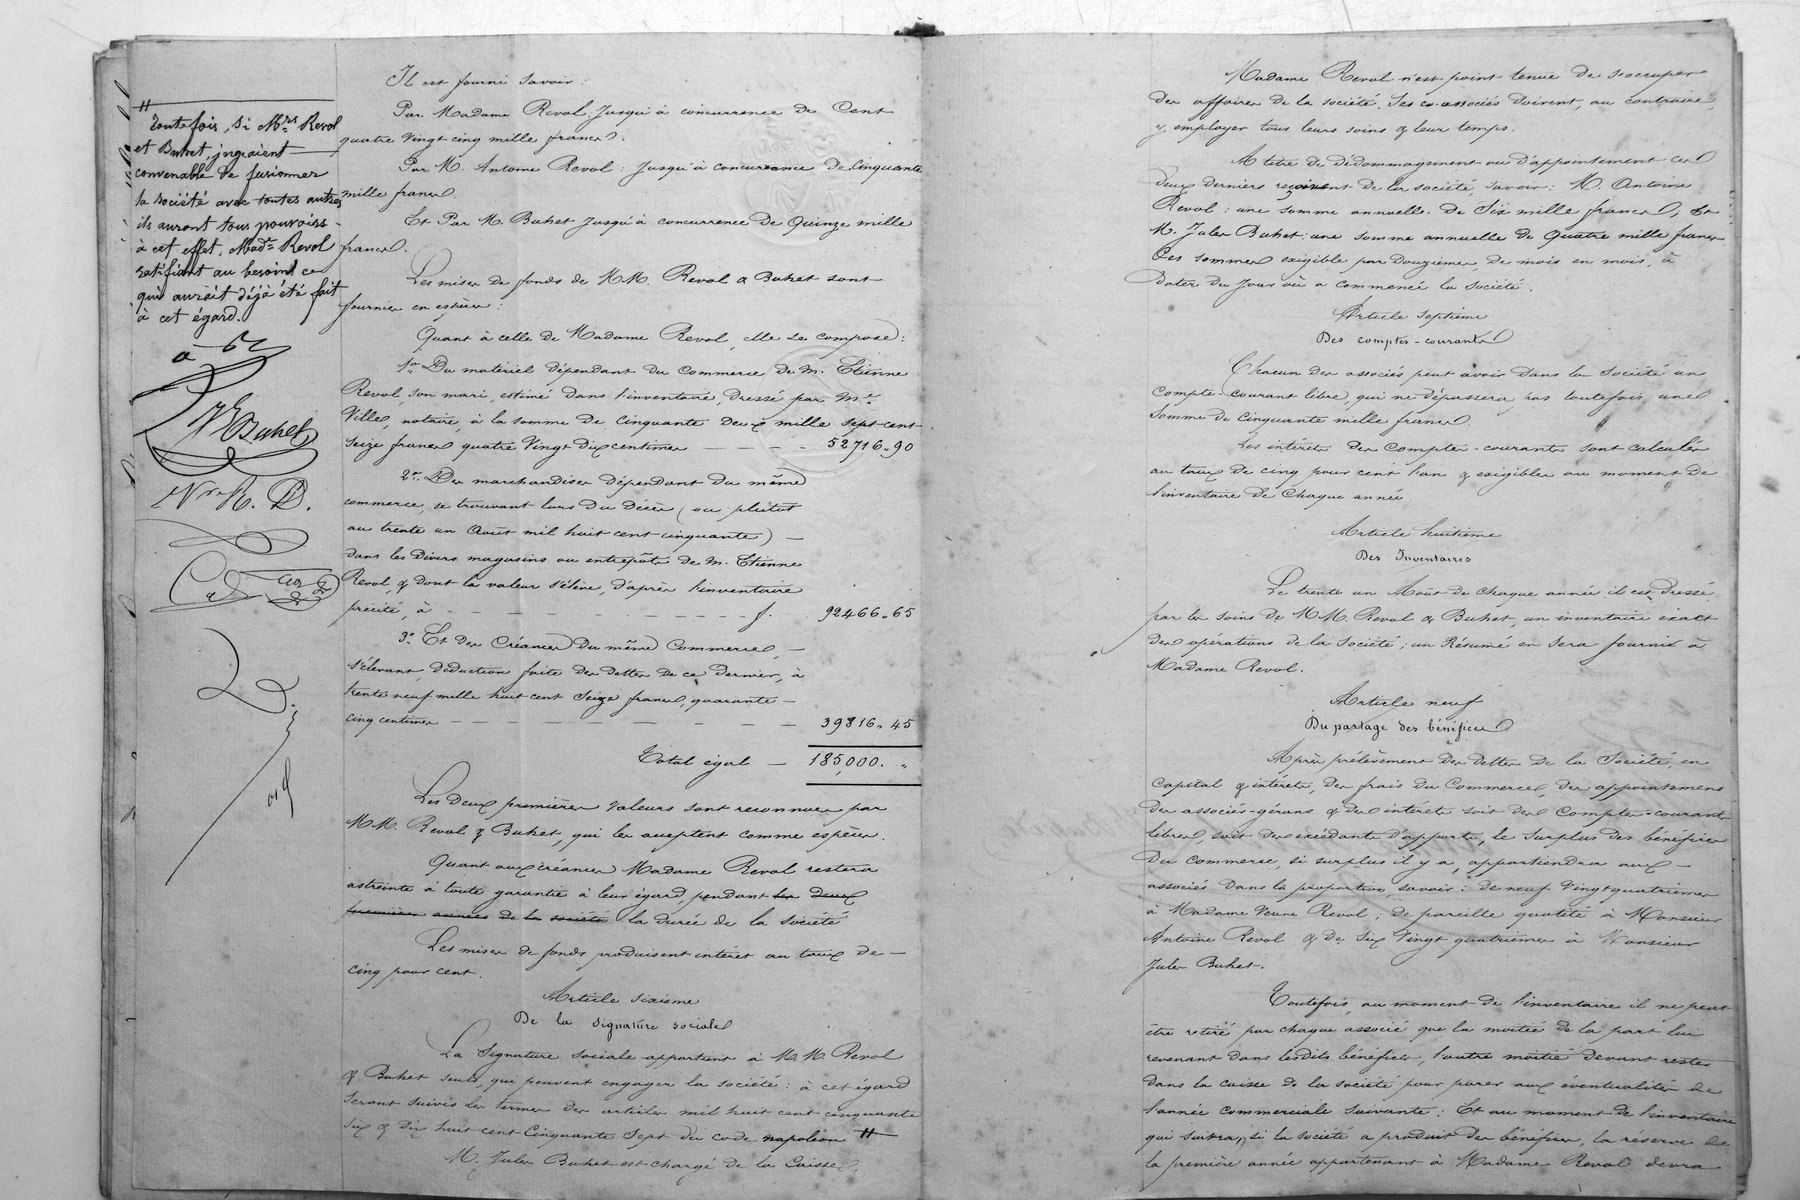 "
Toutefois, si Mrs Revol
et Buhet, jugeaient
convenable de fusionner
la société avec toutes autres
ils auront tous pouvoirs
à cet effet, Made Revol
ratifiant au besoin ce
qui aurait déjà été fait
à cet égard.
Buhet
Il est fourni savoir :
Par Madame Revol. Jusqu'à concurrence de Cent
quatre Vingt cinq mille francs.
Par M. Antoine Revol : Jusqu'à concurrence de Cinquante
mille francs
Et Par M. Buhet Jusqu'à concurrence de Quinze mille
francs.
Les mises de fonds de M.M. Revol & Buhet sont
fournies en espèces :
Quant à celle de Madame Revol, elle se compose :
1er Du matériel dépendant du Commerce de M. Etienne
Revol, son mari, estimé dans l'inventaire, dressé par Me
Ville, notaire, à la somme de Cinquante deux mille sept cent
seize francs quatre Vingt dix centimes — — — 52,716.,90
2e. Des marchandises dépendant du même
commerce, se trouvant lors du décès (ou plutôt
au trente un Août mil huit cent cinquante) —
dans les divers magasins ou entrepôts de M. Etienne
Revol, & dont la valeur s'élève, d'après l'inventaire
précité, à - - - - - - - - - f. 92466.,65
3e. Et des Créances du même Commerce, —
s'élevant, déduction faite des dettes de ce dernier, à
trente neuf mille huit cent seize francs, quarante —
cinq centimes — — — — — — — — 39816.,45
Total égal — 185,000. "
Les deux premières valeurs sont reconnues par
M.M. Revol & Buhet, qui les acceptent comme espèces.
Quant aux créances Madame Revol restera
astreinte à toute garantie à leur égard, pendant les deux
premières années de la société la durée de la société
Les mises de fonds produisent intérêt au taux de —
cinq pour cent.
Article sixième
De la signature sociale
La Signature sociale appartient à M.M. Revol
& Buhet seuls, qui peuvent engager la société : à cet égard
seront suivis les termes des articles mil huit cent cinquante
six & dix huit cent Cinquante Sept du code napoléon "
M. Jules Buhet est chargé de la Caisse.
Madame Revol n'est point tenue de s'occuper
des affaires de la société. Ses co-associés doivent, au contraire,
y employer tous leurs soins & leur temps.
A titre de dédommagement ou d'appointement ces
deux derniers reçoivent de la société, savoir : M. Antoine
Revol : une somme annuelle de Six mille francs, Et
M. Jules Buhet : une somme annuelle de Quatre mille francs
Ces sommes exigible par Douzièmes, de mois en mois, à
dater du Jour où a commencé la société.
Article septième
Des comptes-courants
Chacun des associés peut avoir dans la Société un
compte-courant libre, qui ne dépassera pas toutefois une
somme de cinquante mille francs.
Les intérêts des Comptes-courants sont calculés
au taux de cinq pour cent l'an & exigibles au moment de
l'inventaire de Chaque année.
Article huitième
Des Inventaires
Le trente un Août de chaque année il est dressé
par les soins de M.M. Revol & Buhet, un inventaire exact
des opérations de la Société ; un Résumé en sera fourni à
Madame Revol.
Article neuf
Du partage des bénéfices
Après prélèvement des dettes de la Société, en
capital & intérêts, des frais du Commerce, des appointemens
des associés-gérans & des intérêts soit des Comptes-courants
libres, soit des excédants d'apports, le surplus des bénéfices
du commerce, si surplus il y a, appartiendra aux —
associés dans la proportion, savoir : de neuf Vingt quatrièmes
à Madame Veuve Revol ; de pareille quotité à Monsieur
Antoine Revol & de Six Vingt quatrièmes à Monsieur
Jules Buhet.
Toutefois, au moment de l'inventaire il ne peut
être retiré, par chaque associé que la moitié de la part lui
revenant dans lesdits bénéfices, l'autre moitié devant rester
dans la caisse de la société pour parer aux éventualités de
l'année commerciale suivante : Et au moment de l'inventaire
qui suivra, si la société a produit des bénéfices, la réserve de
la première année appartenant à Madame Revol devra